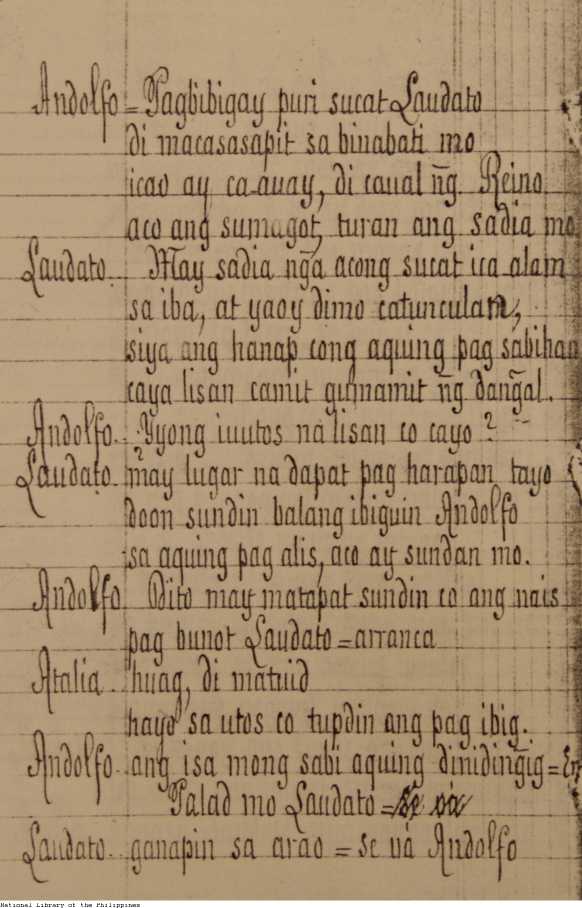 Andolfo = Pagbibigay puri sucat Laudato
di macasasapit sa binabati mo
icao ay ca-auay, di caual n͠g Reino
aco ang sumagot, turan ang sadia mo.
Laudato. May sadia n͠ga acong sucat ica alam
sa iba, at yaoy dimo catunculan,
siya ang hanap cong aquing pag sabihan
caya lisan camit gumamit n͠g dan͠gal.
Andolfo. Yyong iuutos na lisan co cayo?
Laudato. may lugar na dapat pag harapan tayo
doon sundin balang ibiguin Andolfo
sa aquing pag alis, aco ay sundan mo.
Andolfo. Dito may matapat sundin co ang nais
pag bunot Laudato = arranca
Atalia. huag, di matuid
hayo sa utos co tupdin ang pag ibig.
Andolfo. ang isa mong sabi aquing dinidin͠gig =
Palad mo Laudato =
Laudato. ganapin sa arao = se vá Andolfo
National Library of the Philippines